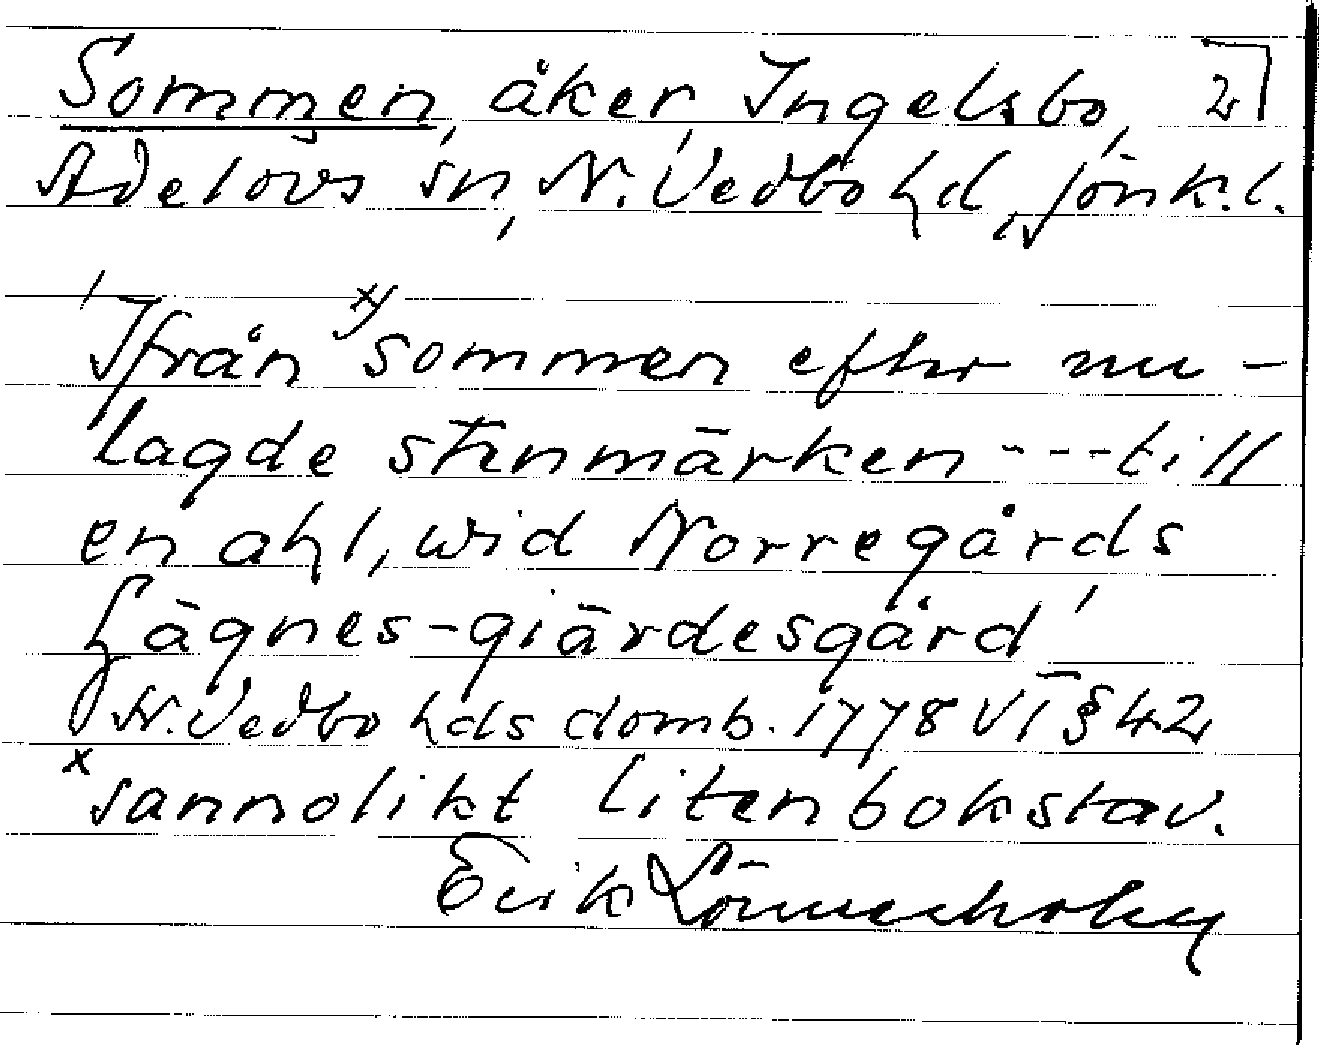 Sommen, åker, Ingelsbo, 2
Adelövs sn, N. Vedbo hd, Jönk.l.
'Ifrån x) sommen efter nu-
lagde stenmärken - - - till
en ahl, wid Norregårds
Lägnes-giärdesgård'
N. Vedbo hds domb. 1778 VT § 42
x sannolikt liten bokstav.
Erik